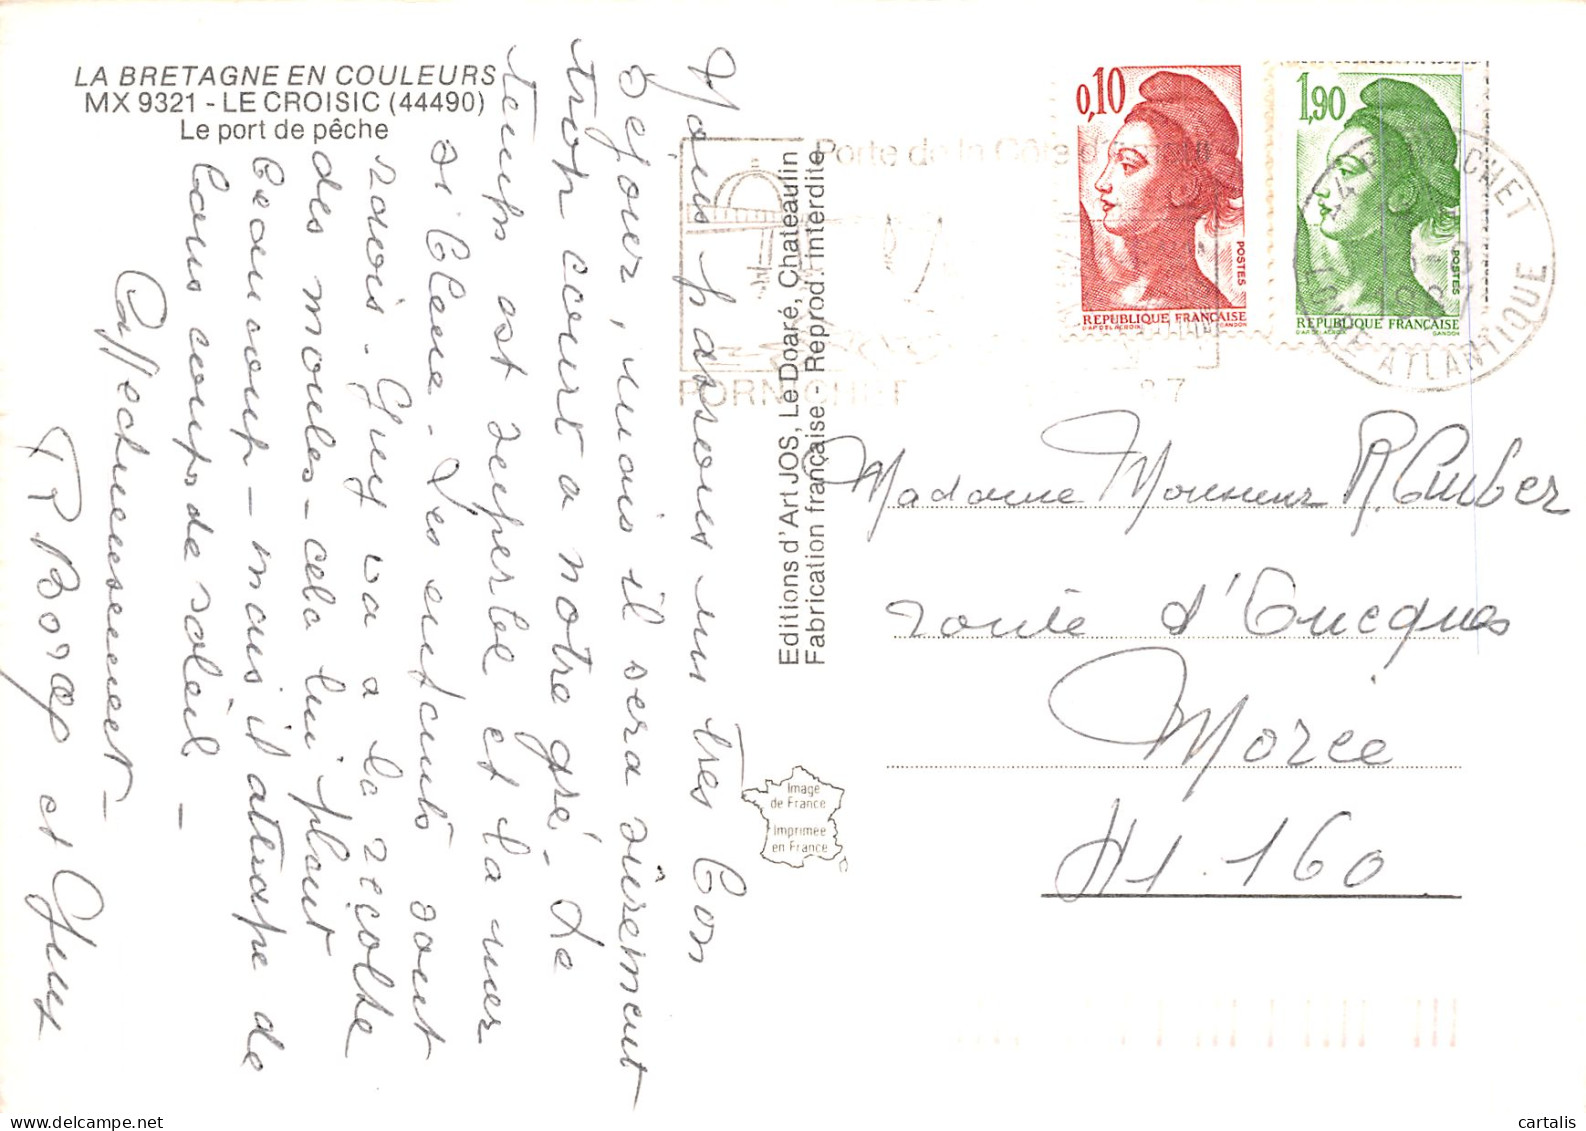 LA BRETAGNE EN COULEURS
MX 9321 - LE CROISIC (44490)
Le port de pêche
Nous passons un tres bon
sejour, mais il sera surement
trop court a notre gré. Le
temps est superbe et la mer
si bleue. Les enfants sont
ravis. Guy va a la recolte
des moules - cela lui plait
beaucoup - mais il attrape de
bons coups de soleil -
Affectueusement -
et Guy
Editions d'Art JOS, Le Doaré, Chateaulin
Fabrication française - Reprod. interdite
Image
de France
Imprimée
en France
Porte de la Côte d'
PORNICHET
0,10
POSTES
REPUBLIQUE FRANÇAISE
D'AP DELACROIX GANDON
1,90
POSTES
REPUBLIQUE FRANÇAISE
D'AP DELACROIX GANDON
44 PORNICHET
LOIRE ATLANTIQUE
Madame Monsieur R. Cuber
route d'Oucques
Morée
41.160
cartalis